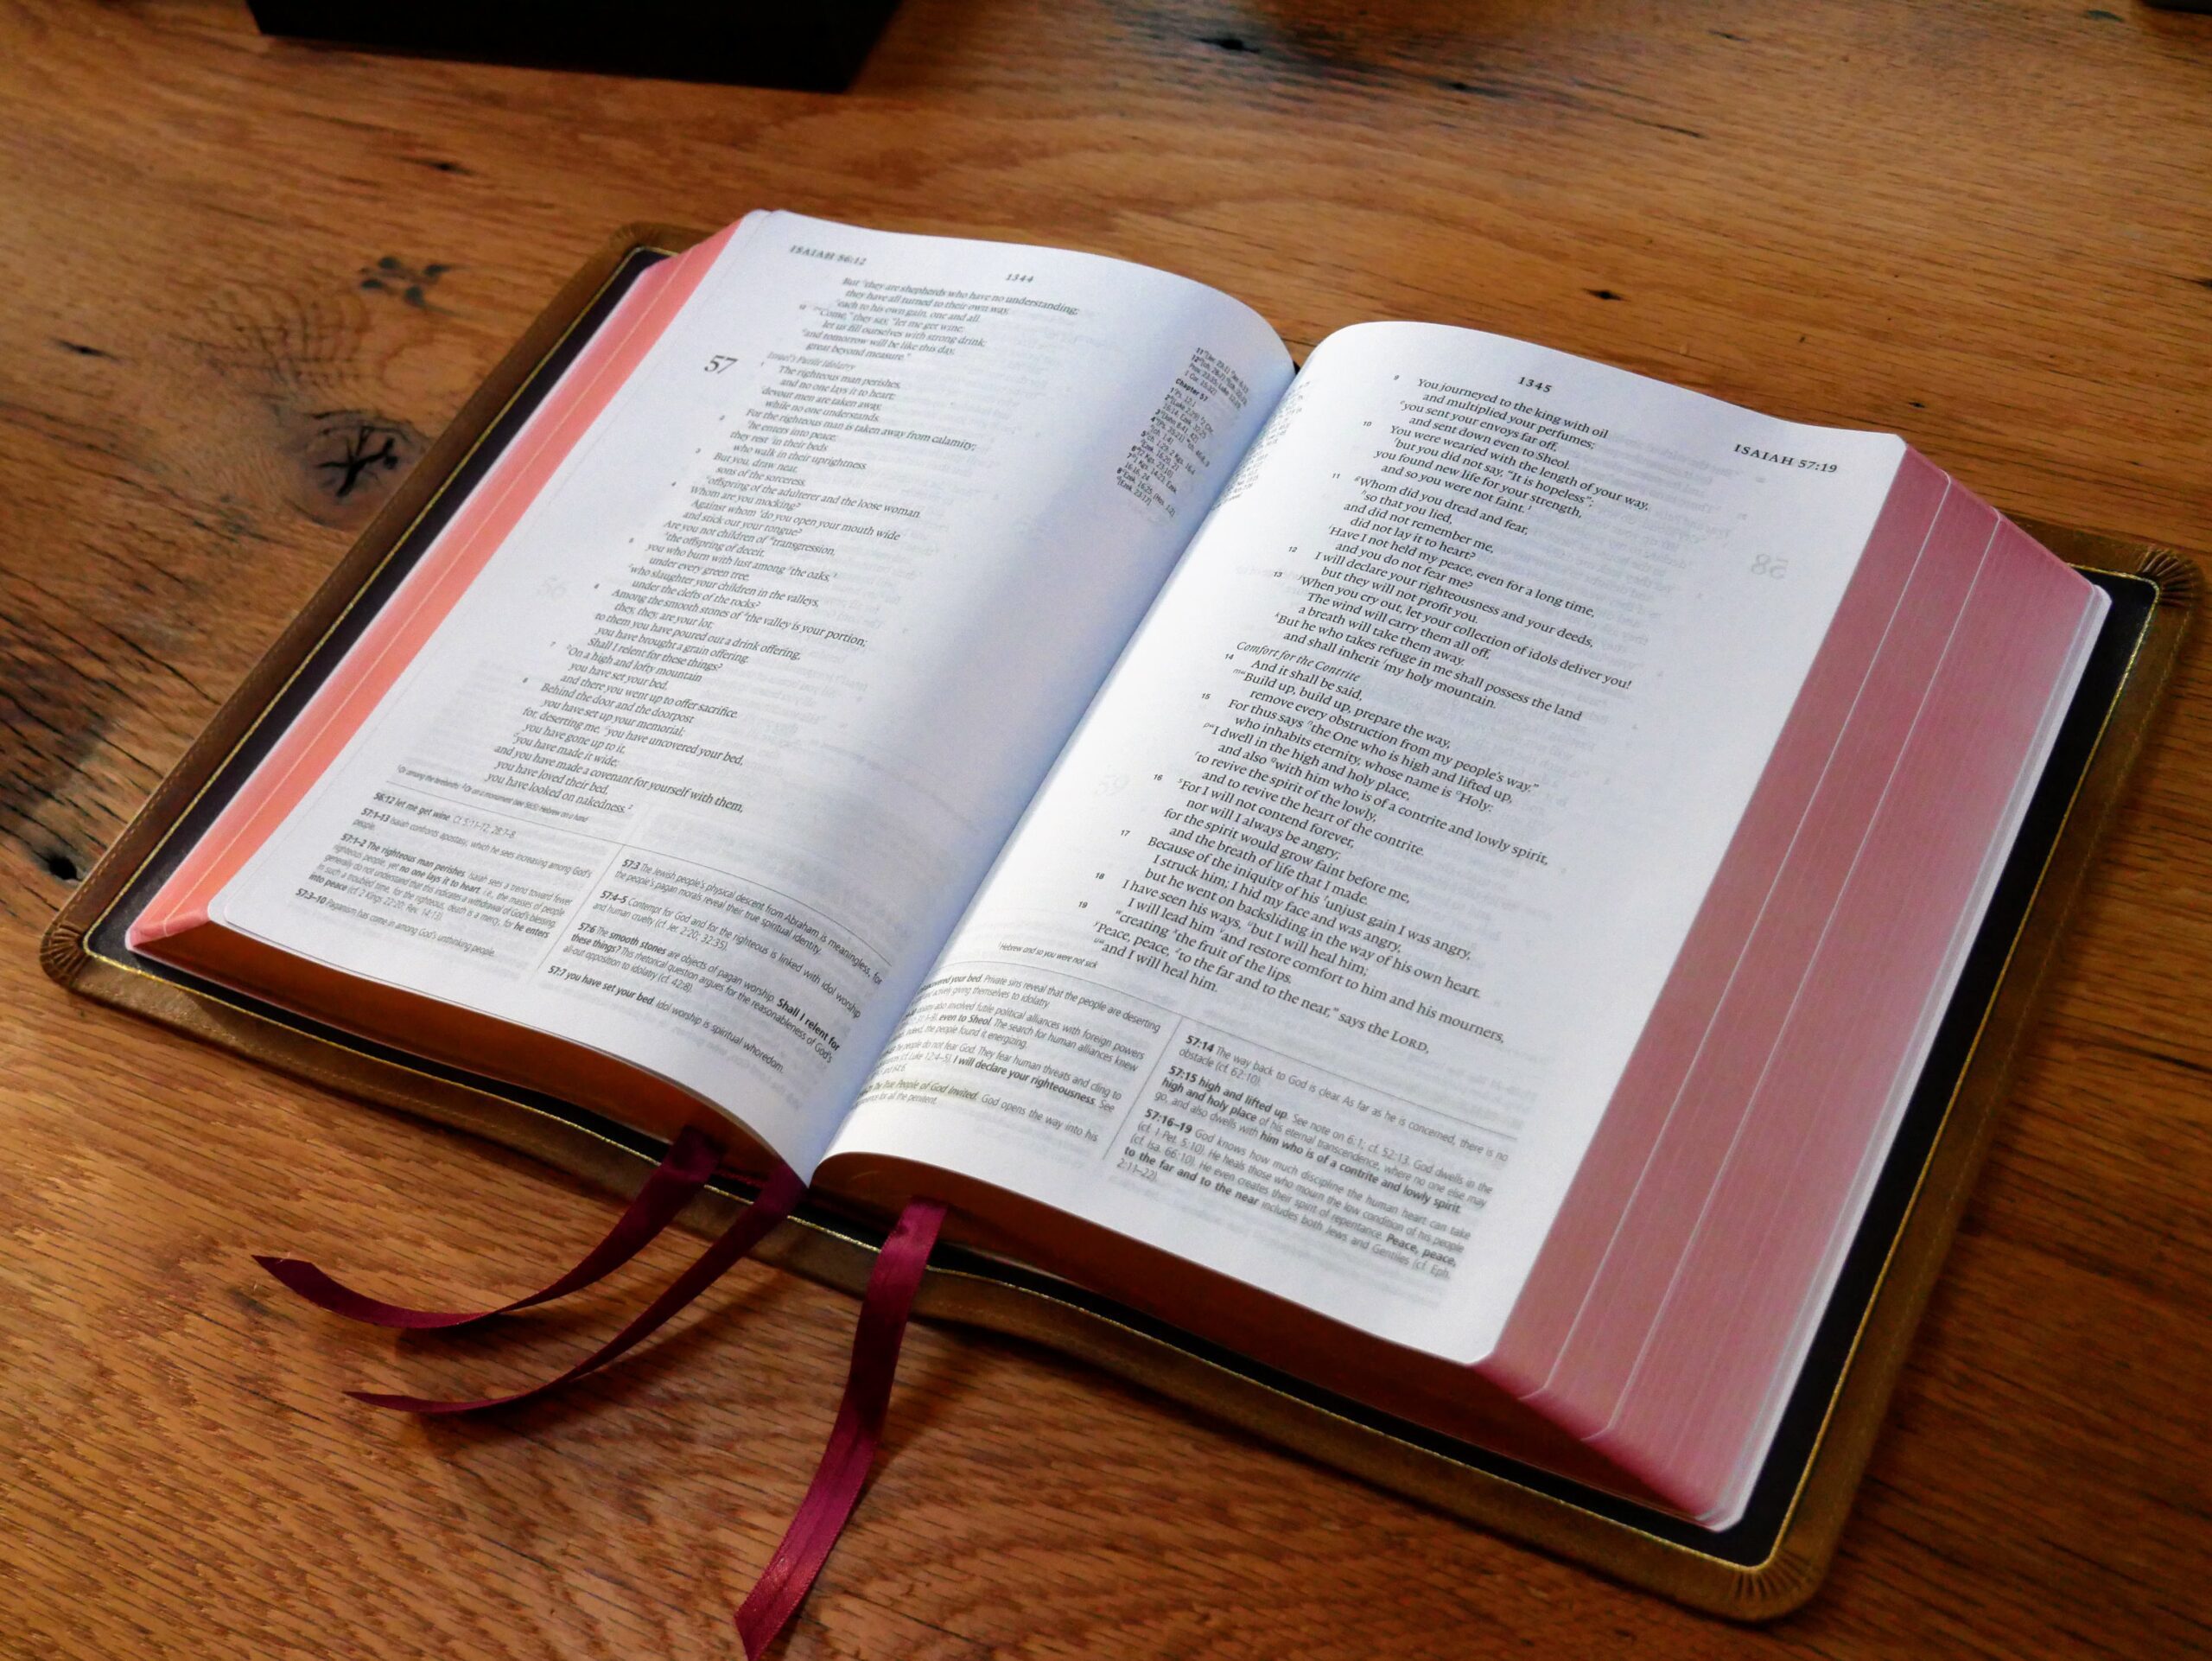 ISAIAH 56:12
1344
But they are shepherds who have no understanding;
they have all turned to their own way,
each to his own gain, one and all.
12 "Come," they say, "let me get wine;
let us fill ourselves with strong drink;
and tomorrow will be like this day,
great beyond measure."
57
Israel's Futile Idolatry
1 The righteous man perishes,
and no one lays it to heart;
devout men are taken away,
while no one understands.
For the righteous man is taken away from calamity;
2 he enters into peace;
they rest in their beds
who walk in their uprightness.
3 But you, draw near,
sons of the sorceress,
offspring of the adulterer and the loose woman.
4 Whom are you mocking?
Against whom do you open your mouth wide
and stick out your tongue?
Are you not children of transgression,
the offspring of deceit,
5 you who burn with lust among the oaks,
under every green tree,
who slaughter your children in the valleys,
under the clefts of the rocks?
6 Among the smooth stones of the valley is your portion;
they, they, are your lot;
to them you have poured out a drink offering,
you have brought a grain offering.
Shall I relent for these things?
7 On a high and lofty mountain
you have set your bed,
and there you went up to offer sacrifice.
8 Behind the door and the doorpost
you have set up your memorial;
for, deserting me, you have uncovered your bed,
you have gone up to it,
you have made it wide;
and you have made a covenant for yourself with them,
you have loved their bed,
you have looked on nakedness. 2
56:12 let me get wine. Cf. 5:11–12; 28:7–8.
57:1–13 Isaiah confronts apostasy, which he sees increasing among God's
people.
57:1–2 The righteous man perishes. Isaiah sees a trend toward fewer
righteous people, yet no one lays it to heart, i.e., the masses of people
generally do not understand that this indicates a withdrawal of God's blessing.
In such a troubled time, for the righteous, death is a mercy, for he enters
into peace (cf. 2 Kings 22:20; Rev. 14:13).
57:3–10 Paganism has come in among God's unthinking people.
57:3 The Jewish people's physical descent from Abraham is meaningless, for
the people's pagan morals reveal their true spiritual identity.
57:4–5 Contempt for God and for the righteous is linked with idol worship
and human cruelty (cf. Jer. 2:20; 32:35).
57:6 The smooth stones are objects of pagan worship. Shall I relent for
these things? This rhetorical question argues for the reasonableness of God's
all-out opposition to idolatry (cf. 42:8).
57:7 you have set your bed. Idol worship is spiritual whoredom.
Chapter 57
1345
ISAIAH 57:19
9 You journeyed to the king with oil
and multiplied your perfumes;
you sent your envoys far off,
and sent down even to Sheol.
10 You were wearied with the length of your way,
but you did not say, "It is hopeless";
you found new life for your strength,
and so you were not faint. 1
11 Whom did you dread and fear,
so that you lied,
and did not remember me,
did not lay it to heart?
Have I not held my peace, even for a long time,
and you do not fear me?
12 I will declare your righteousness and your deeds,
but they will not profit you.
13 When you cry out, let your collection of idols deliver you!
The wind will carry them all off,
a breath will take them away.
But he who takes refuge in me shall possess the land
and shall inherit my holy mountain.
Comfort for the Contrite
14 And it shall be said,
"Build up, build up, prepare the way,
remove every obstruction from my people's way."
15 For thus says the One who is high and lifted up,
who inhabits eternity, whose name is Holy:
"I dwell in the high and holy place,
and also with him who is of a contrite and lowly spirit,
to revive the spirit of the lowly,
and to revive the heart of the contrite.
16 For I will not contend forever,
nor will I always be angry;
for the spirit would grow faint before me,
and the breath of life that I made.
17 Because of the iniquity of his unjust gain I was angry,
I struck him; I hid my face and was angry,
but he went on backsliding in the way of his own heart.
18 I have seen his ways, but I will heal him;
I will lead him and restore comfort to him and his mourners,
19 creating the fruit of the lips.
Peace, peace, to the far and to the near," says the LORD,
"and I will heal him.
1 Hebrew and so you were not sick
your bed. Private sins reveal that the people are deserting
actively giving themselves to idolatry.
also involved futile political alliances with foreign powers
even to Sheol. The search for human alliances knew
the people found it energizing.
people do not fear God. They fear human threats and cling to
(cf. Luke 12:4–5). I will declare your righteousness. See
The True People of God Invited. God opens the way into his
for all the penitent.
57:14 The way back to God is clear. As far as he is concerned, there is no
obstacle (cf. 62:10).
57:15 high and lifted up. See note on 6:1; cf. 52:13. God dwells in the
high and holy place of his eternal transcendence, where no one else may
go, and also dwells with him who is of a contrite and lowly spirit.
57:16–19 God knows how much discipline the human heart can take
(cf. 1 Pet. 5:10). He heals those who mourn the low condition of his people
(cf. Isa. 66:10). He even creates their spirit of repentance. Peace, peace,
to the far and to the near includes both Jews and Gentiles (cf. Eph.
2:11–22).